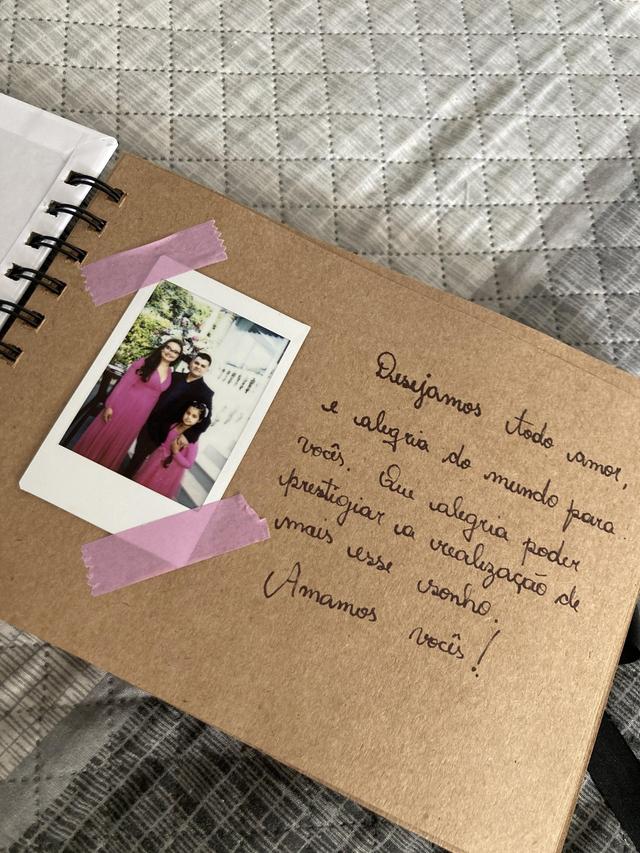 Desejamos todo amor,
e alegria do mundo para
vocês. Que alegria poder
prestigiar a realização de
mais esse sonho.
Amamos vocês!